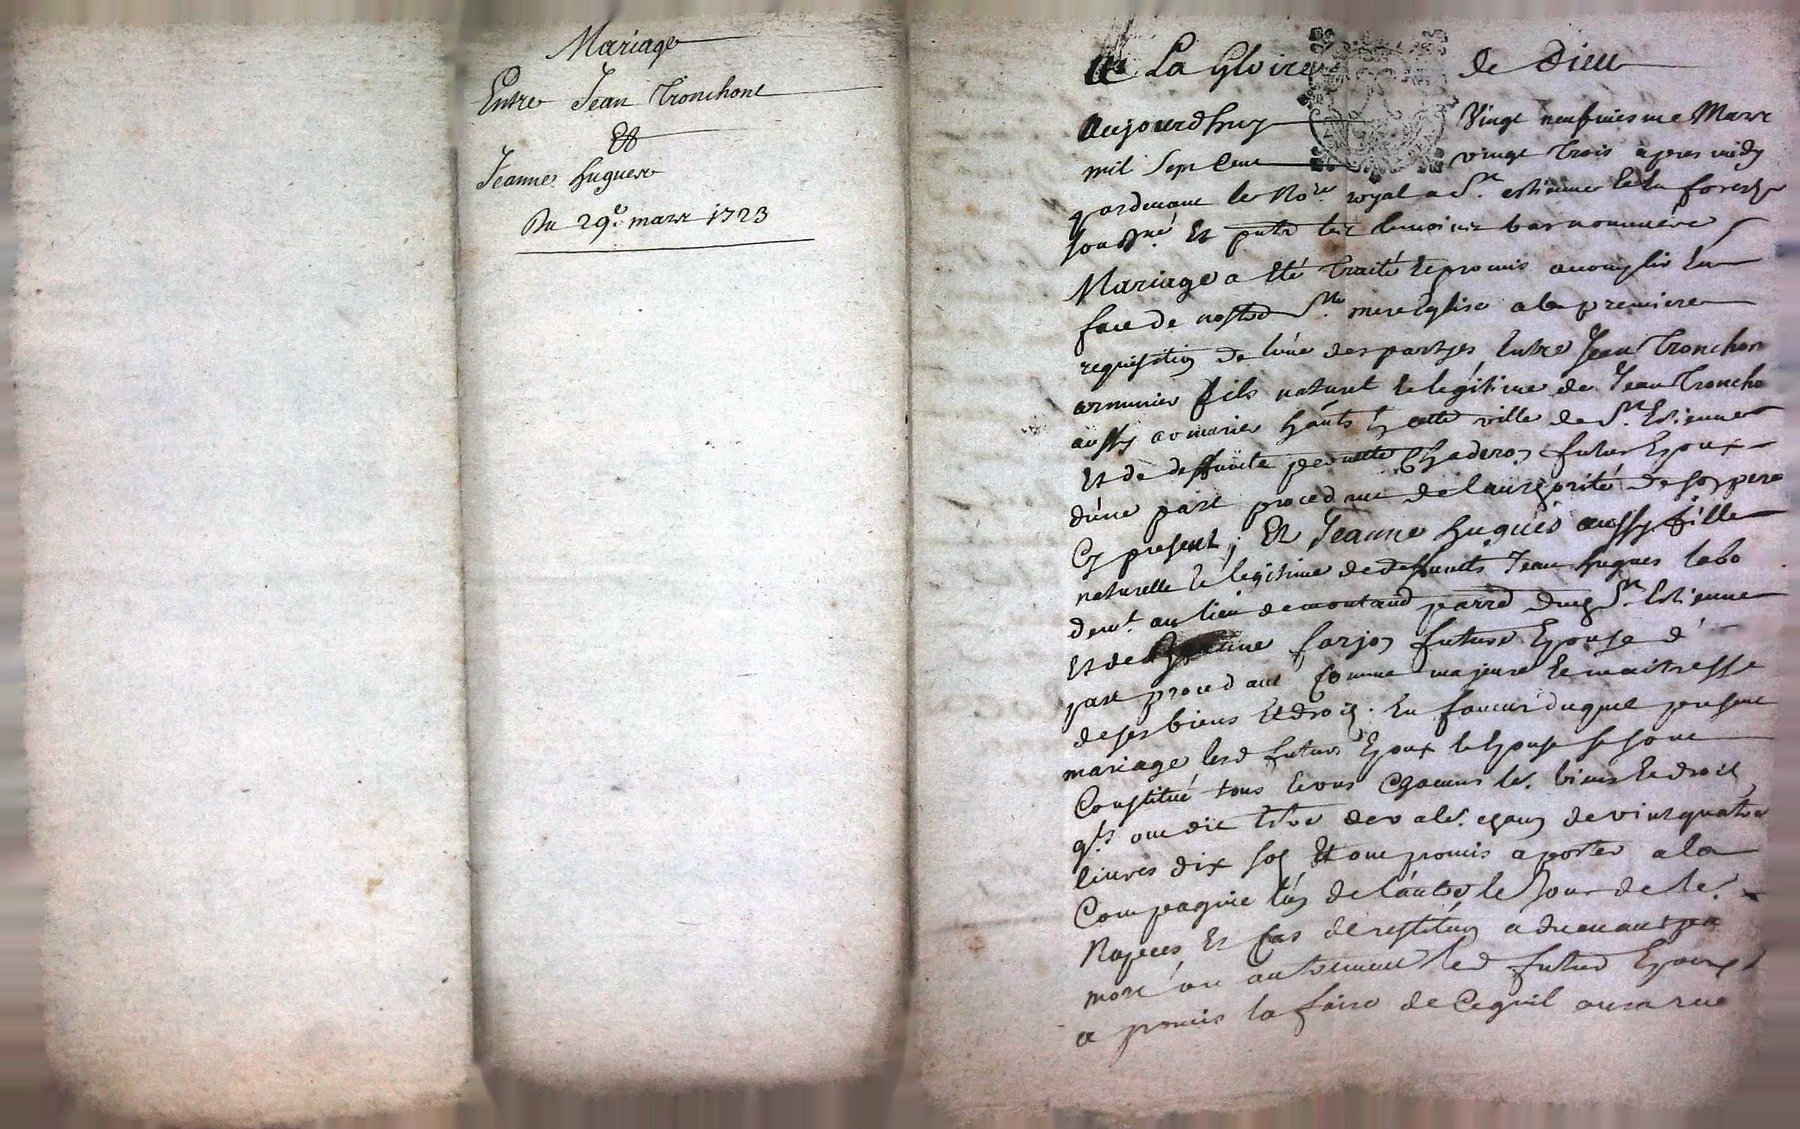 Mariage
Entre Jean Tronchont
Et
Jeanne hugues
Du 29e mars 1723
A La Gloire de Dieu
Aujourdhuy Vingt neufviesme Mars
mil Sept Cent vingt Trois apres midy
pardevant le No.re royal a St. estienne en forest
sousné Et
Mariage a eté Traité et promis accomplir En
face de nostre Ste mere Eglise a la premiere
requisition de lune des partyes Entre Jean Tronchon
armurier fils naturel et legitime de Jean Troncho
aussy armurier de cette ville de St. Estienne
Et de deffuncte Chaderon futur Epoux
dune part procedant de lauthorité de son pere
Cy present ; Et Jeanne hugues aussy fille
naturelle et legitime de deffunts Jean hugues labo
au lieu de montaud St. Estienne
Et de farjon future Epouse d
part procedant Comme majeure et maitresse
de ses biens Et droits . En faveur duquel present
mariage lesd futurs Epoux et Epouse se sont
Constitué tous Et uns Chacuns les biens et droits
qls ont dit estre de valr. de vint quatre
livres dix sols Et ont promis aporter a la
Compagnie lun de lautre le jour de le.
Et Cas de restitution
ou autrement led futur Epoux
a promis la faire de Ce quil aura receu